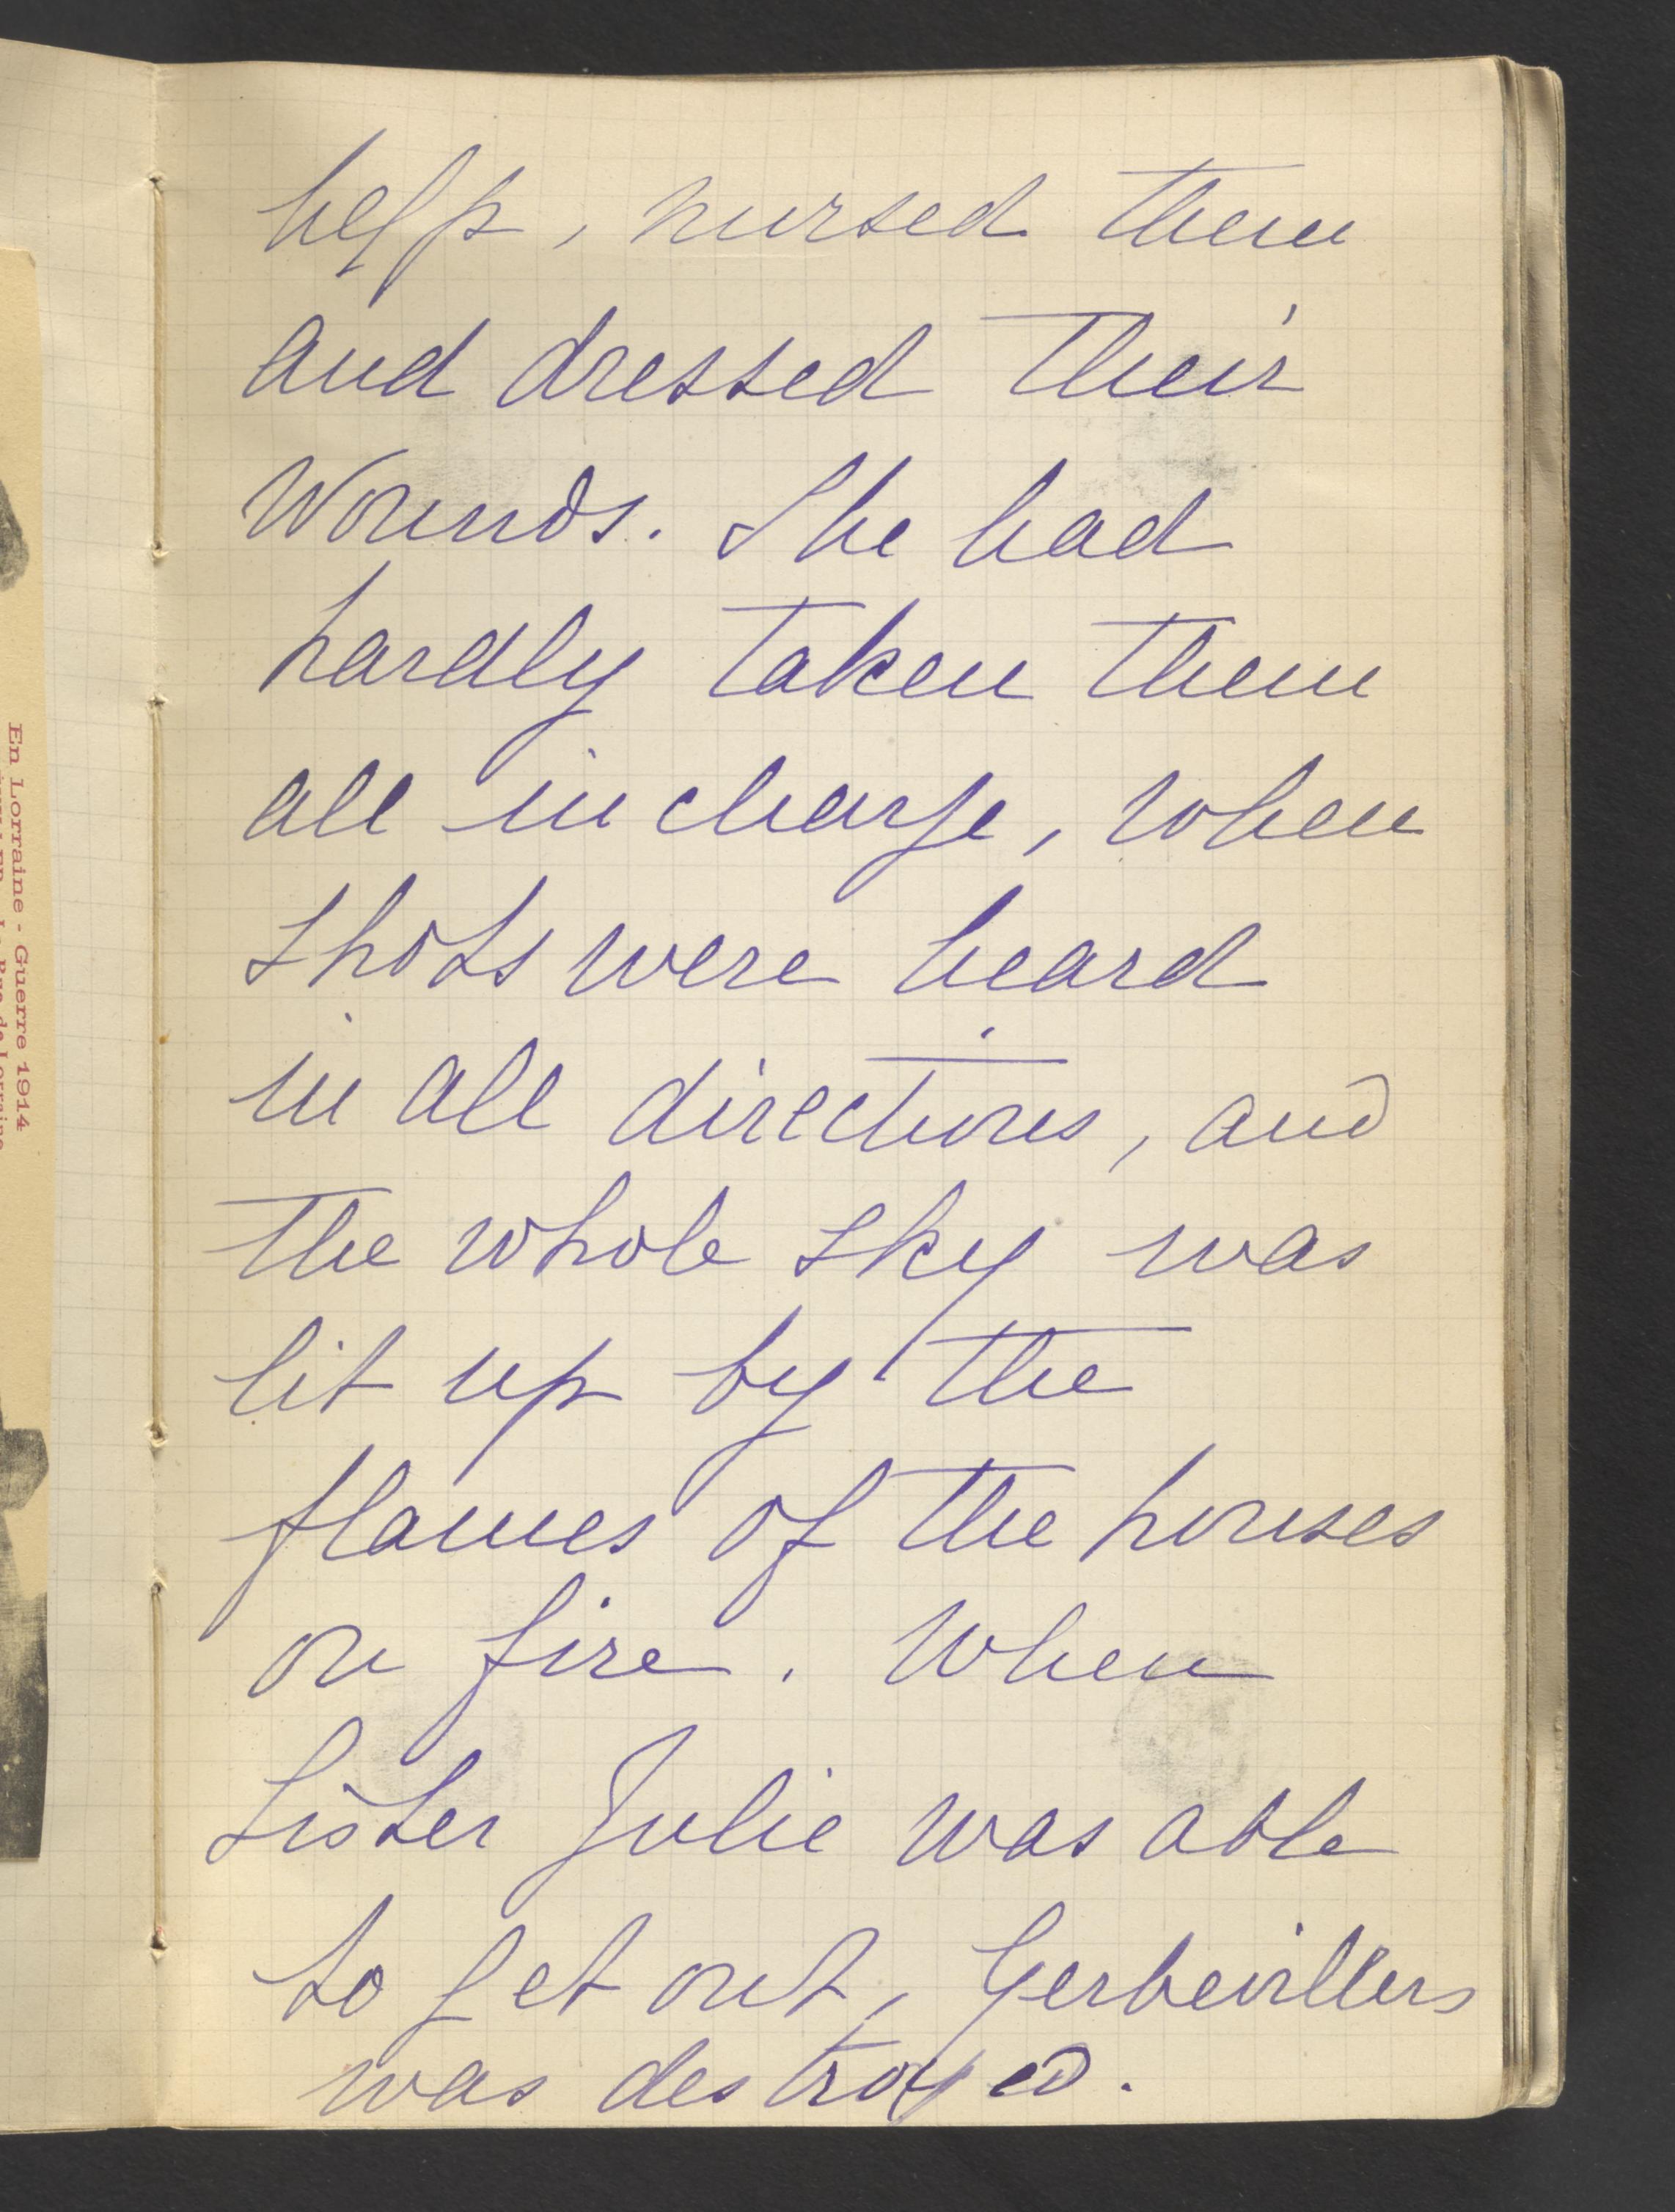 En Lorraine - Guerre 1914
help, nursed them
and dressed their
wounds. She had
hardly taken them
all in charge, when
shots were heard
in all directions, and
the whole sky was
lit up by the
flames of the houses
on fire. When
Sister Julie was able
to get out, Gerbevillers
was destroyed.